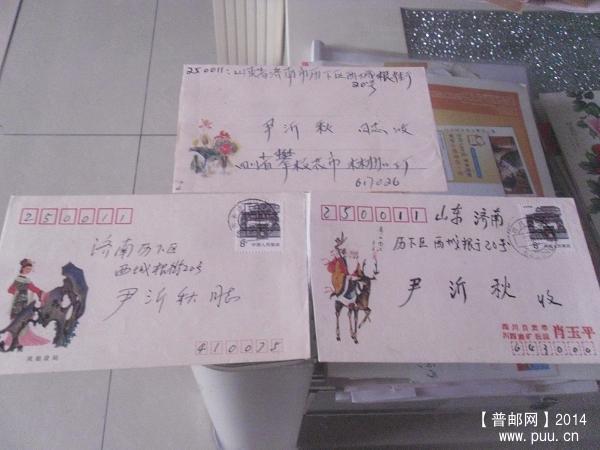 250011: 山东省济南市历下区西城根街
20号
尹沂秋 同志收
四川省攀枝花市
617026
250011
济南历下区
西城根街20号
尹沂秋同志
410075
250011
山东 济南
历下区 西城根街20号
尹沂秋 收
四川自贡市
肖玉平
643000
8分 中国人民邮政
8分
【普邮网】2014
www.puu.cn